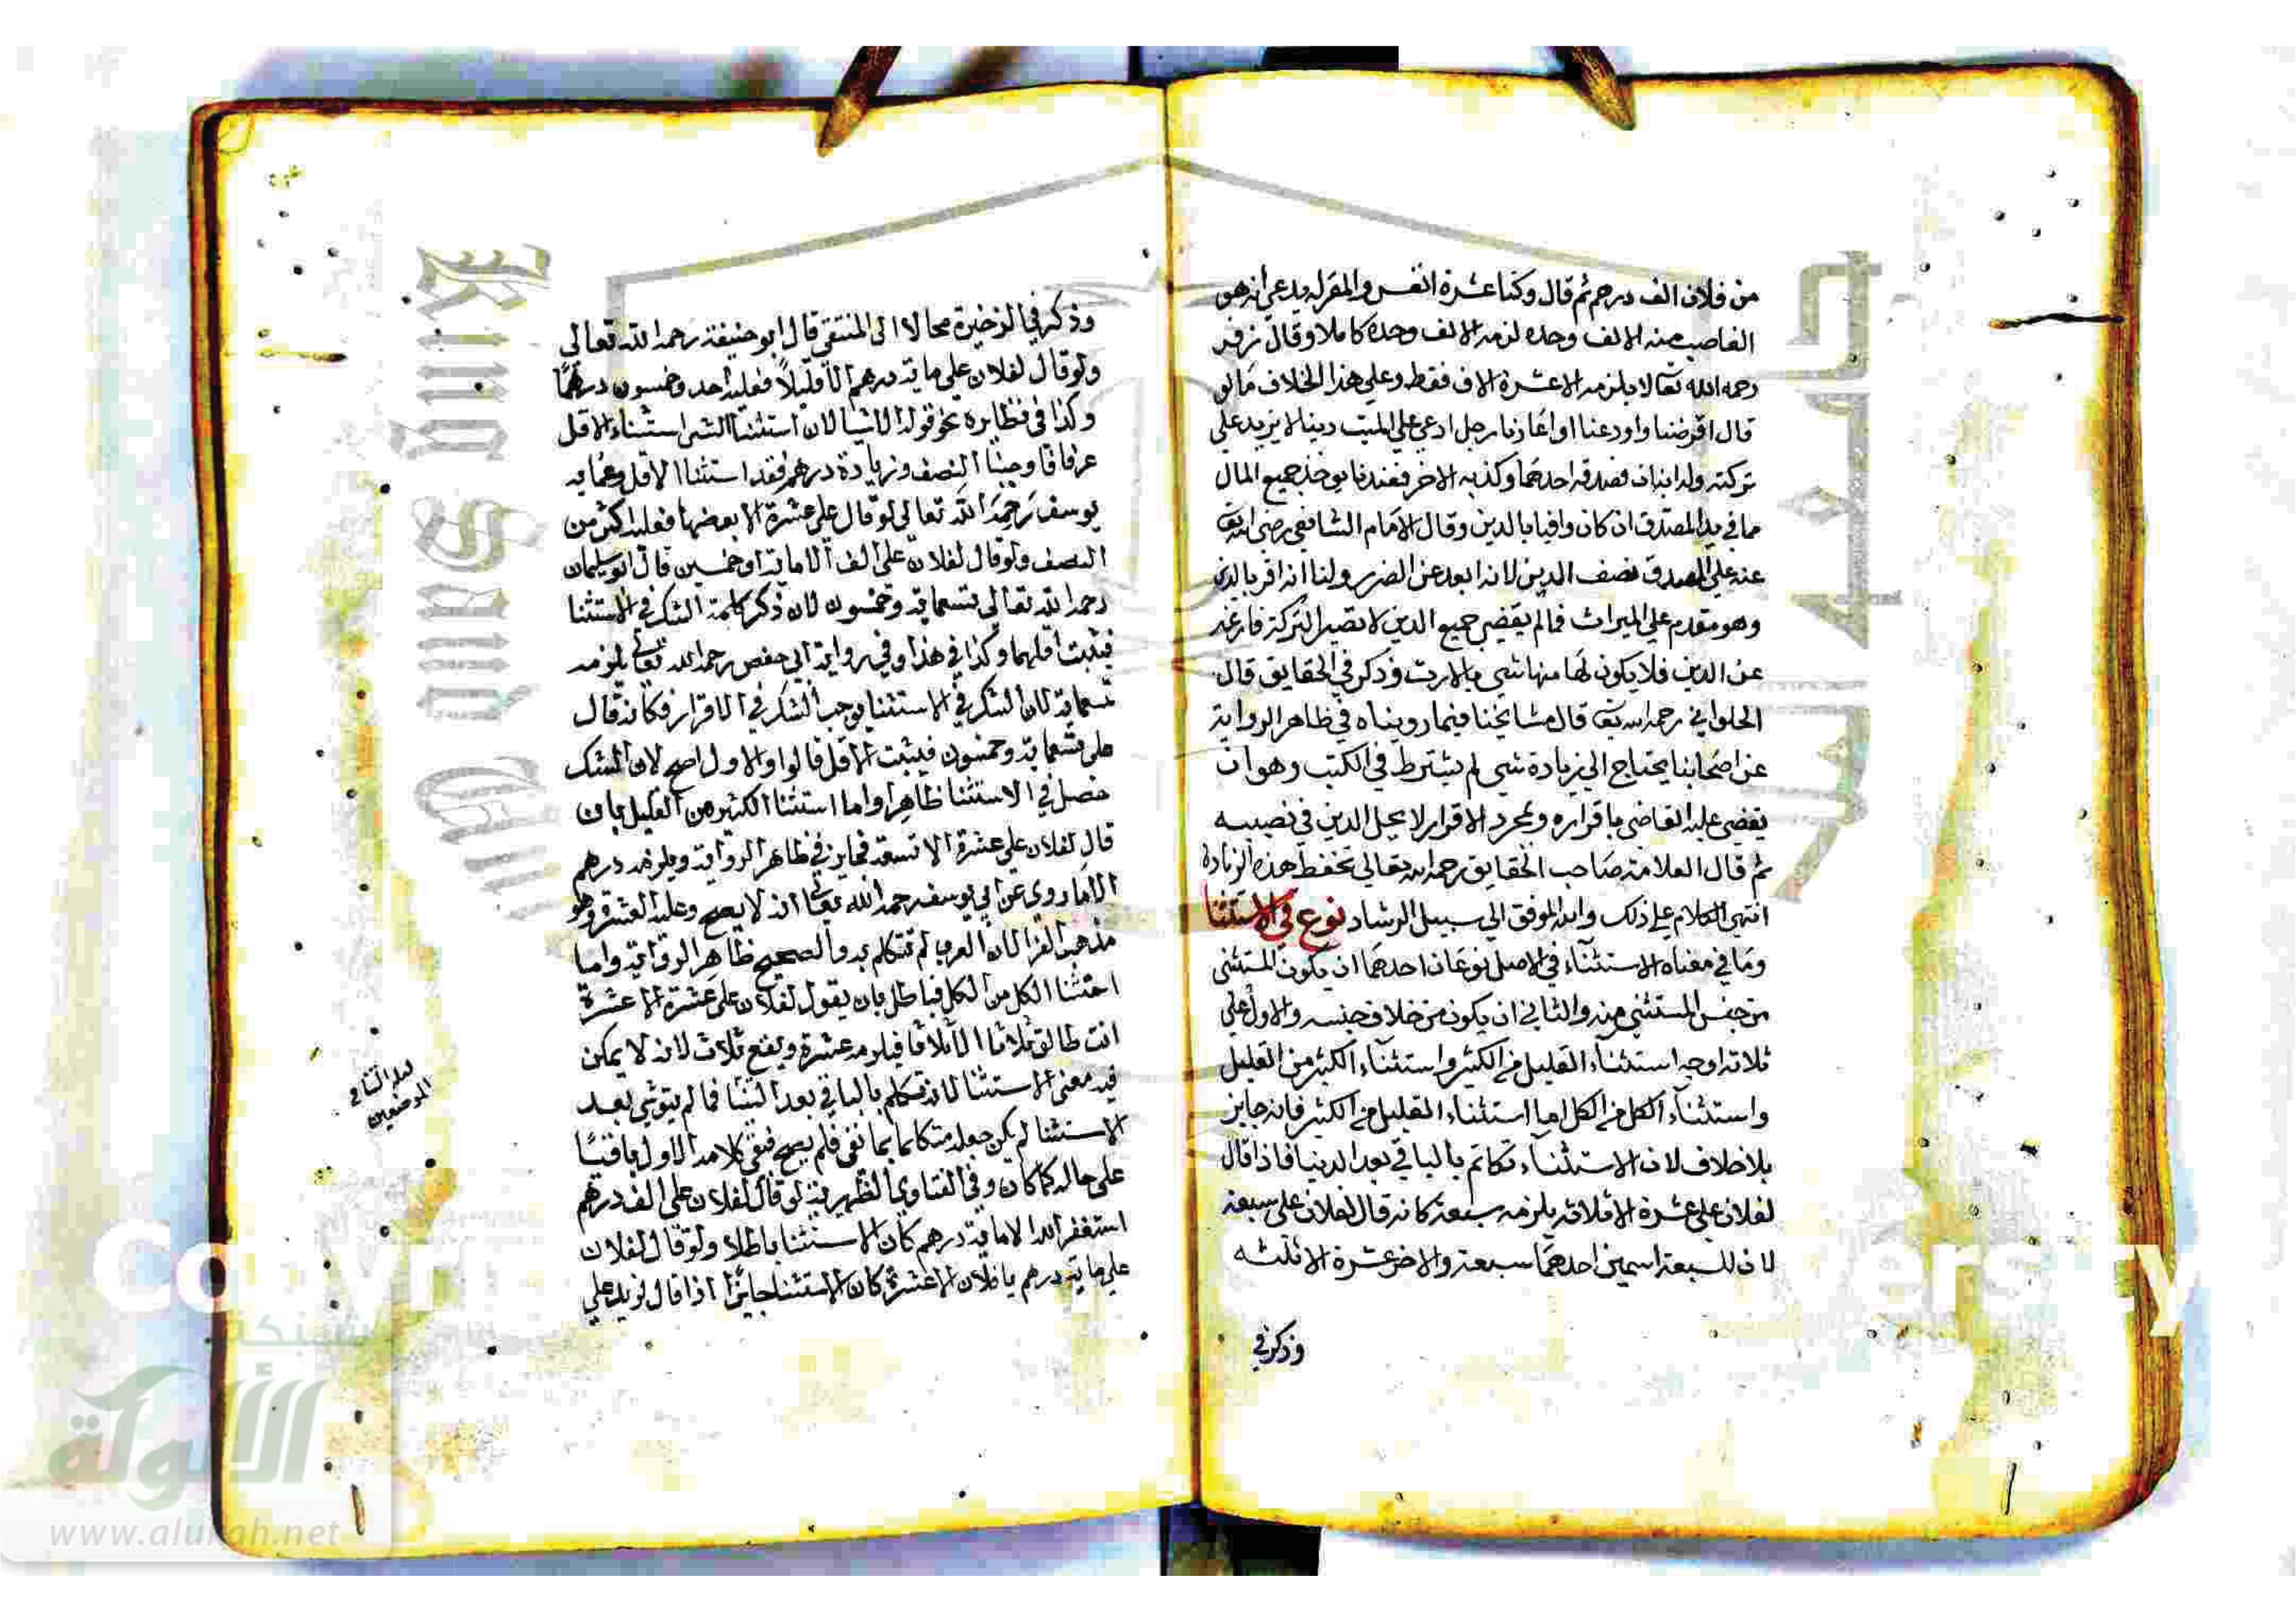 من فلان الف درهم ثم قال وكنا عشرة انفس والمقر له يدعي انه هو
الغاصب منه الالف وحده لزمه الالف وحده كاملا وقال زفر
رحمه الله تعالى لا يلزمه الا عشرة الاف فقط وعلي هذا الخلاف مالو
قال اقرضنا واودعنا او اعارنا رجل ادعي علي الميت دينا لا يزيد علي
تركته وله ابنان فصدقه احدهما وكذبه الاخر فعندنا يوخذ جميع المال
مما في يد المصدق ان كان وافيا بالدين وقال الامام الشافعي رضي الله تعا
عنه علي المصدق نصف الدين لانه ابعد عن الضرر ولنا انه اقر بالدين
وهو مقدم علي الميراث فمالم يقضي جميع الدين لا تصير التركة فارغة
عن الدين فلا يكون لها منها شي بالارث وذكر في الحقايق قال
الحلواني رحمه الله تعا قال مشايخنا فيما رويناه في ظاهر الرواية
عن اصحابنا يحتاج الي زيادة شي لم يشترط في الكتب وهو ان
يقضي عليه القاضي باقراره وبمجرد الاقرار لا يحل الدين في نصيبه
ثم قال العلامة صاحب الحقايق رحمه الله تعالي تحفظ هذه الزيادة
انتهي الكلام علي ذلك والله الموفق الي سبيل الرشاد نوع في الاستثنا
وما في معناه الاستثناء في الاصل نوعان احدهما ان يكون المستثني
من جنس المستثني منه والثاني ان يكون من خلاف جنسه والاول علي
ثلاثة اوجه استثناء القليل من الكثير واستثناء الكثير من القليل
واستثناء الكل من الكل اما استثناء القليل من الكثير فانه جايز
بلا خلاف لان الاستثناء تكلم بالباقي بعد الثنيا فاذا قال
لفلان علي عشرة الا ثلاثة يلزمه سبعة كانه قال لفلان علي سبعة
لان للسبعة اسمين احدهما سبعة والاخر عشرة الا ثلثه
وذكر في
وذكر في الذخيرة محالا الى المنتقى قال ابو حنيفة رحمه الله تعالى
ولو قال لفلان علي ماية درهم الا قليلا فعليه احد وخمسون درهما
وكذا في نظايره نحو قوله الا شيا لان استثنا الشي استثناء الاقل
عرفا فاوجبنا النصف وزيادة درهم فقد استثنا الاقل وعن ابي
يوسف رحمه الله تعالى لو قال علي عشرة الا بعضها فعليه اكثر من
النصف ولو قال لفلان علي الف الا ماية او خمسين قال ابو سليمان
رحمه الله تعالى تسعماية وخمسون لان ذكر كلمة الشك في الاستثنا
فيثبت اقلهما وكذا في هذا وفي رواية ابي حفص رحمه الله تعالى يلزمه
تسعماية لان الشك في الاستثنا يوجب الشك في الاقرار فكانه قال
علي تسعماية وخمسون فيثبت الاقل قالوا والاول اصح لان الشك
حصل في الاستثنا ظاهرا واما استثنا الكثير من القليل بان
قال لفلان علي عشرة الا تسعة فجايز في ظاهر الرواية ويلزمه درهم
الا ما روي عن ابي يوسف رحمه الله تعالى انه لا يصح وعليه العشرة وهو
مذهب الفرا لان العرب لم تتكلم به والصحيح ظاهر الرواية واما
استثنا الكل من الكل فباطل بان يقول لفلان علي عشرة الا عشرة
انت طالق ثلاثا الا ثلاثا فيلزمه عشرة ويقع ثلاث لانه لا يمكن
فيه معنى الاستثنا لانه تكلم بالباقي بعد الثنيا فما لم يبق شي بعد
الاستثنا لم يكن جعله متكلما بما نفى فلم يصح فبقي كلامه الاول باقيا
على حاله كما كان وفي الفتاوي الظهيرية لو قال لفلان علي الف درهم
استغفر الله الا ماية درهم كان الاستثنا باطلا ولو قال لفلان
علي ماية درهم يا فلان الا عشرة كان الاستثنا جايزا اذا قال لزيد علي
الموضعين
King Saud
Copyri
ersity
جامعة
شبكة
الألوكة
www.alukah.net